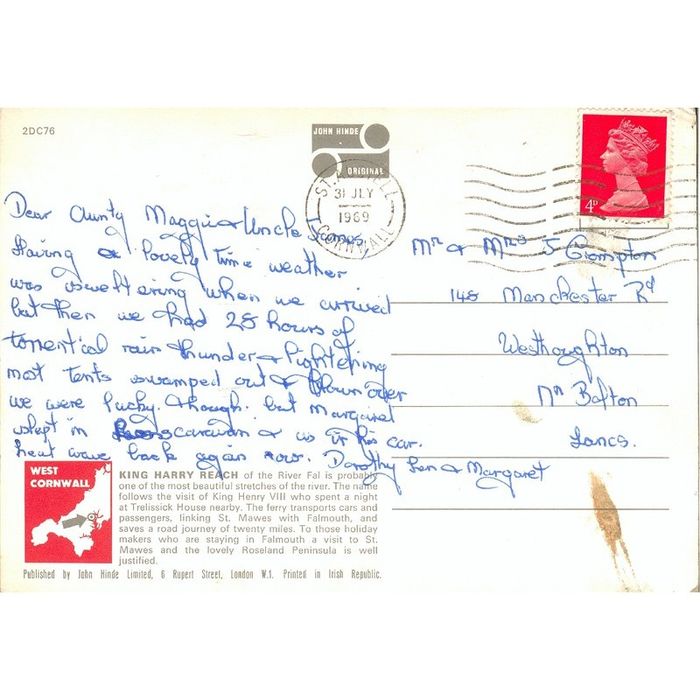 2DC76
JOHN HINDE
ORIGINAL
31 JLY
1969
CORNWALL
4D
Dear Aunty Maggie & Uncle James
Having a lovely time weather
was sweltering when we arrived
but then we had 28 hours of
torrential rain thunder & lightening
most tents swamped out & blown over
we were lucky though. but Margaret
slept in caravan & us in his car.
heat wave back again now. Dorothy Len & Margaret
Mr & Mrs J Crompton
148 Manchester Rd
Westhoughton
Nr Bolton
Lancs.
WEST
CORNWALL
KING HARRY REACH of the River Fal is probably
one of the most beautiful stretches of the river. The name
follows the visit of King Henry VIII who spent a night
at Trelissick House nearby. The ferry transports cars and
passengers, linking St. Mawes with Falmouth, and
saves a road journey of twenty miles. To those holiday
makers who are staying in Falmouth a visit to St.
Mawes and the lovely Roseland Peninsula is well
justified.
Published by John Hinde Limited, 6 Rupert Street, London W.1. Printed in Irish Republic.